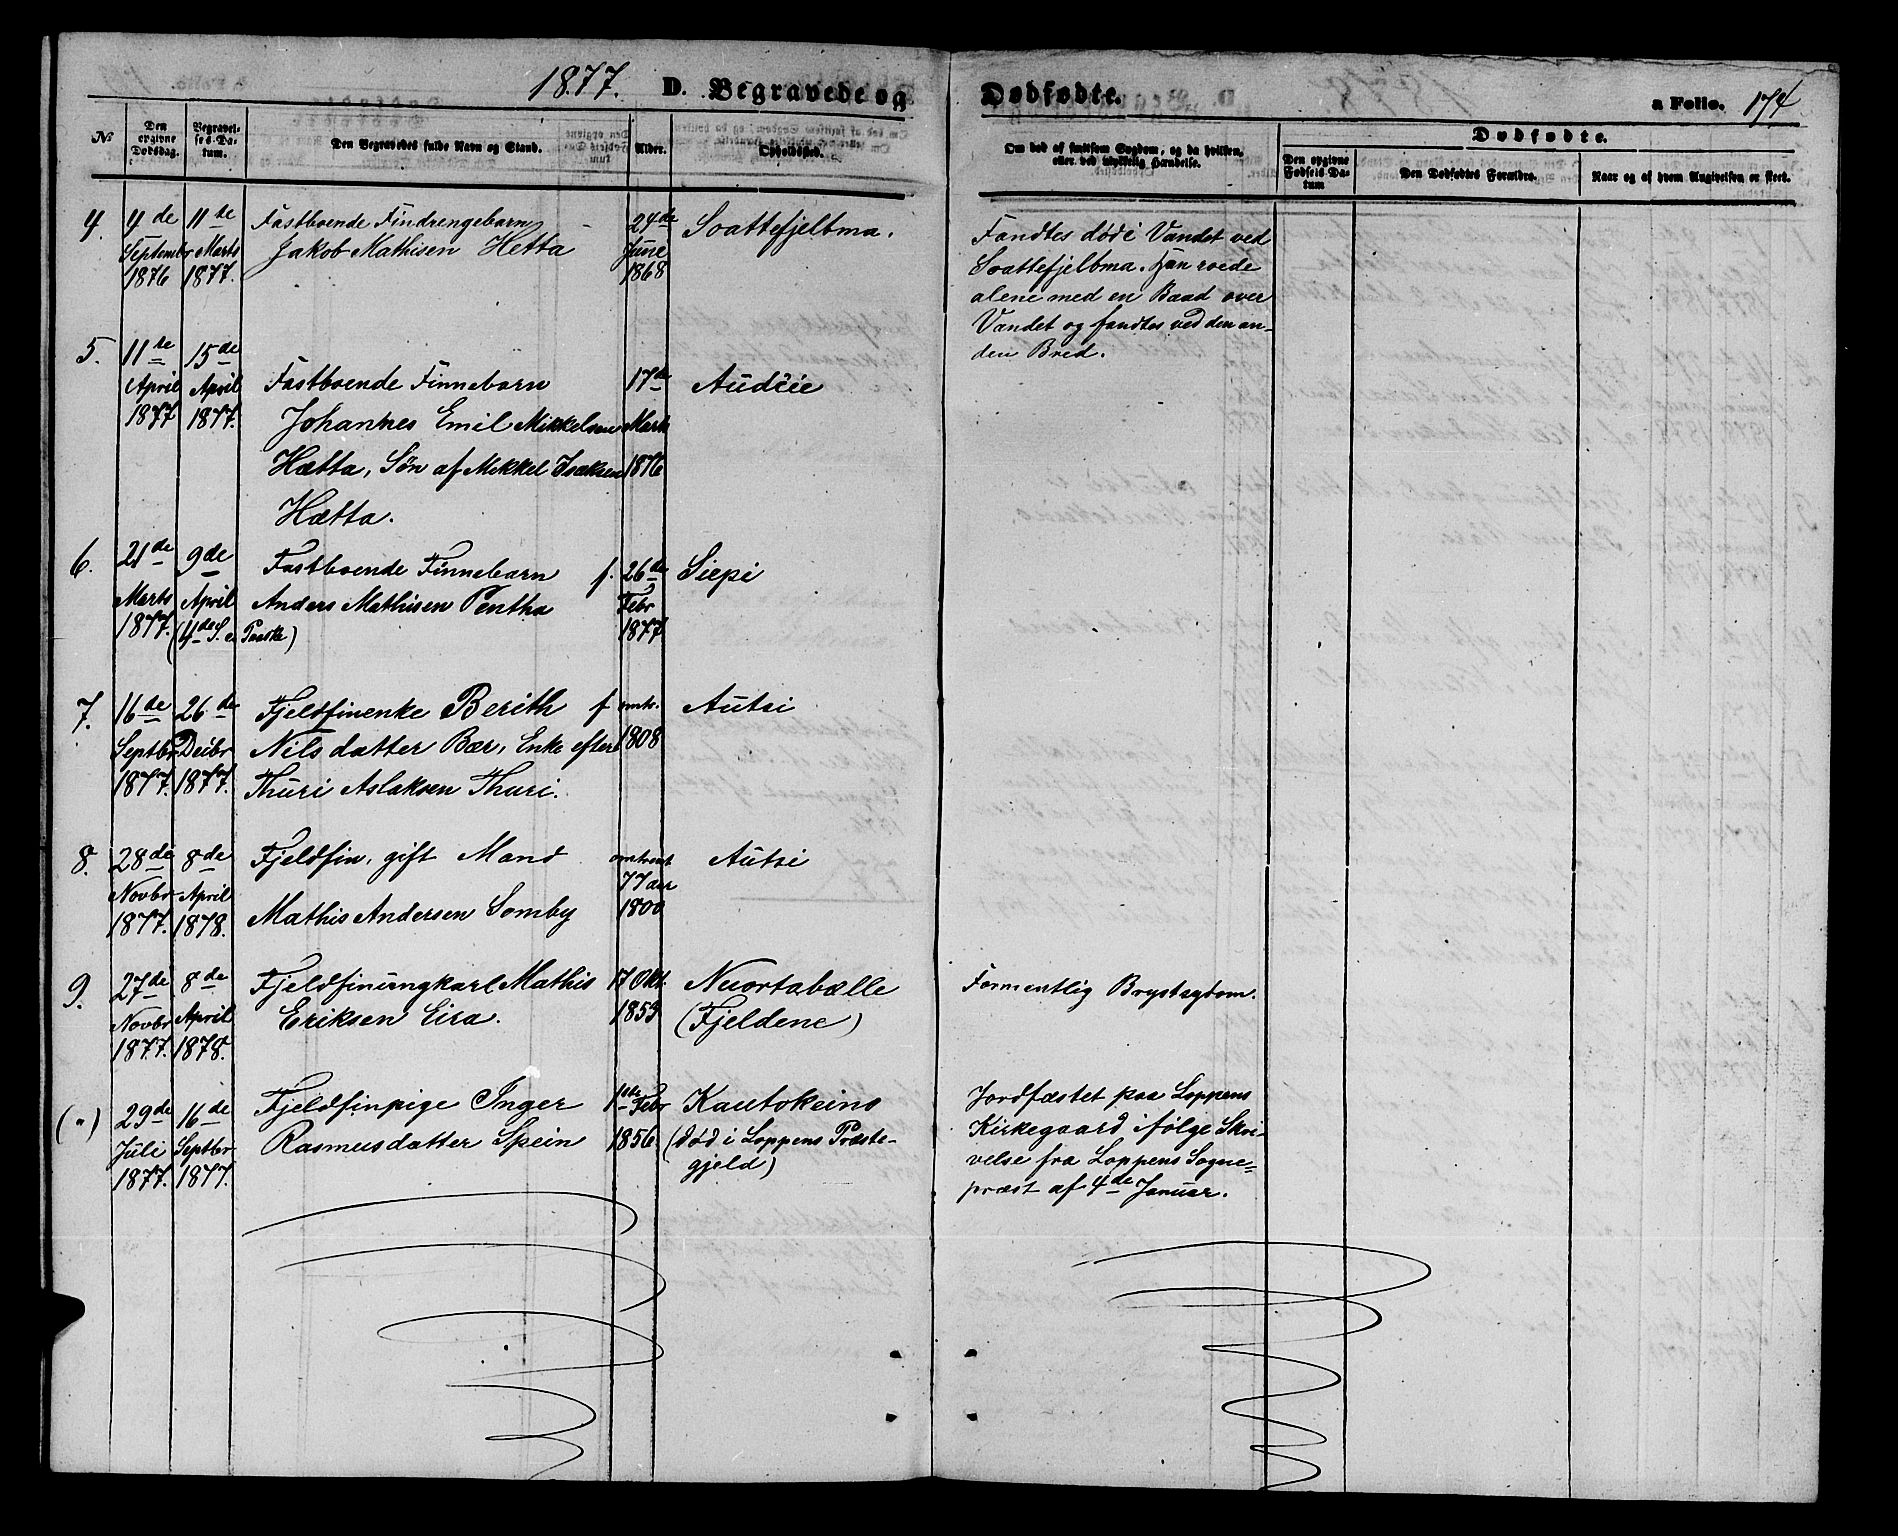 1877. D. Begravede og Dødfødte. a Folio. 174
№
Den opgivne Dødsdag.
Begravelses-Datum.
Den Begravedes fulde Navn og Stand.
Alder.
Opholdssted.
Om død af smitsom Sygdom, og da hvilken, eller ved ulykkelig Hændelse.
Dødfødte.
Den opgivne Fødsels-Datum
Den Dødfødtes Forældre.
Naar og af hvem Angivelsen er skeet.
4.
4de
Septembr
1876
11te
Marts
1877.
Fastboende Findrengebarn
Jakob Mathisen Hetta
24de
June
1868
Soattefjelbma.
Fandtes død i Vandet ved
Soattefjelbma. Han roede
alene med en Baad over
Vandet og fandtes ved den an-
den Bred.
5.
11te
April
1877
15de
April
1877.
Fastboende Finnebarn
Johannes Emil Mikkelsen
Hætta, Søn af Mikkel Isaksen
Hætta.
17de
Marts
1876
Audeie
6.
21de
Marts
1877.
9de
April
(4de S. e. Paaske)
Fastboende Finnebarn
Anders Mathisen Pentha
f. 26de
Febr
1877
Siepi
7.
16de
Septbr
1877.
26de
Decbr
1877.
Fjeldfinenke Berith
Nilsdatter Bær, Enke efter
Thuri Aslaksen Thuri.
f omtr.
1808
Autsi
8.
28de
Novbr
1877.
8de
April
1878.
Fjeldfin, gift Mand
Mathis Andersen Somby
omtrent
77 aar
1800
Autsi
9.
27de
Novbr
1877.
8de
April
1878.
Fjeldfinungkarl Mathis
Eriksen Eira.
17 Okt.
1853
Nuortabælle
(Fjeldene)
Formentlig Brystsygdom.
(")
29de
Juli
1877.
16de
Septbr
1877.
Fjeldfinpige Inger
Rasmusdatter Spein
1ste Febr
1856.
Kautokeino
(død i Loppens Præste-
gjeld)
Jordfæstet paa Loppens
Kirkegaard ifølge Skri-
velse fra Loppens Sogne-
præst af 4de Januar.